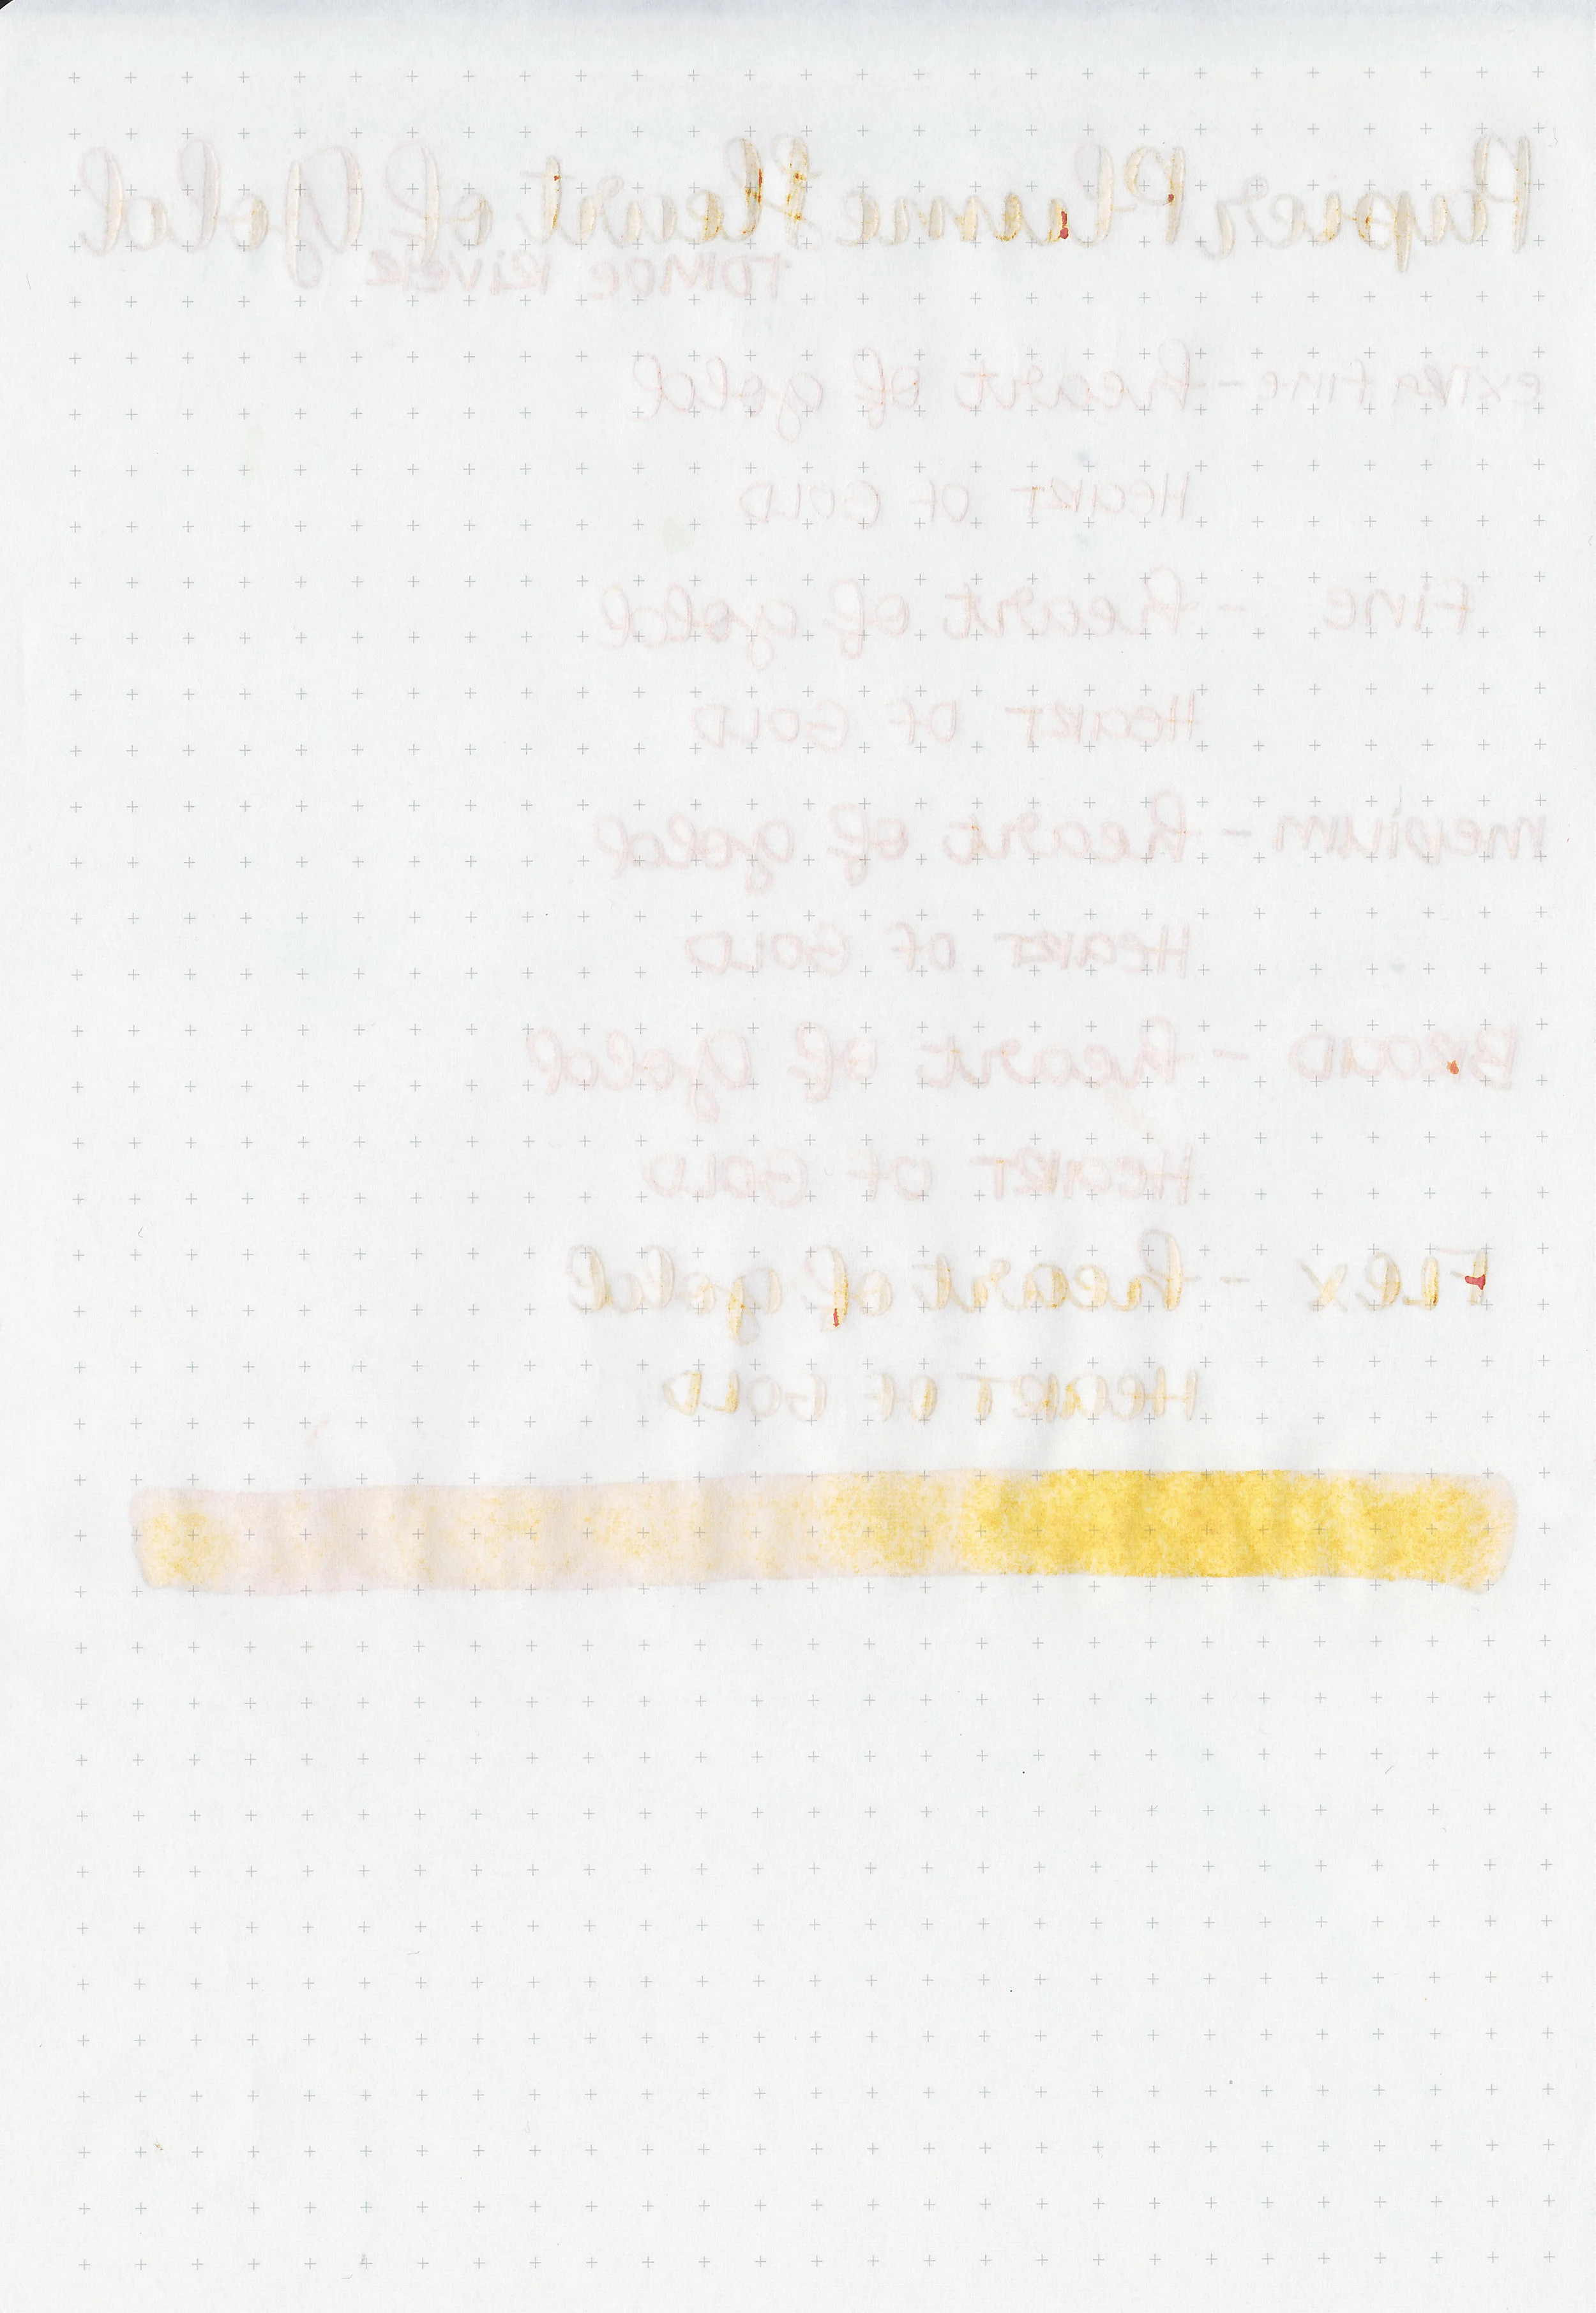 Papier Plume Heart of Gold
TOMOE RIVER
extra fine - heart of gold
HEART OF GOLD
Fine - heart of gold
HEART OF GOLD
medium - heart of gold
HEART OF GOLD
BROAD - heart of gold
HEART OF GOLD
FLEX - heart of gold
HEART OF GOLD